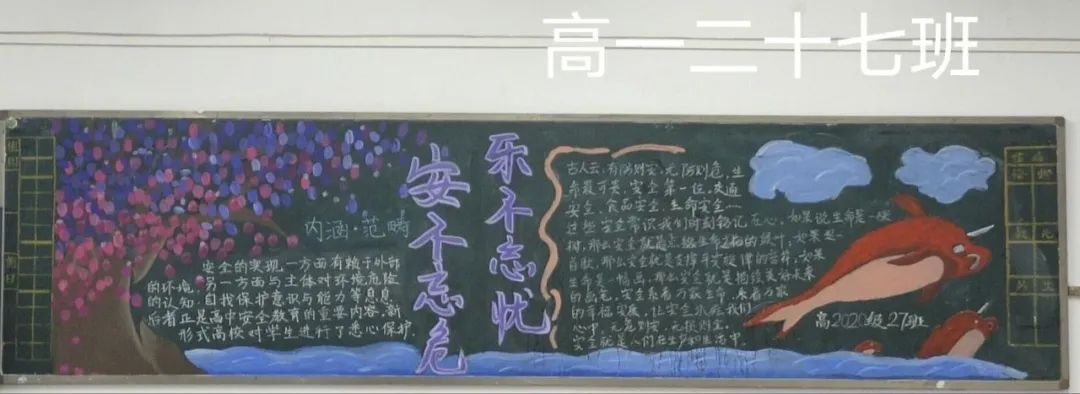 高一二十七班
乐不忘忧
安不忘危
内涵·范畴
安全的实现,一方面有赖于外部
的环境,另一方面与主体对环境危险
的认知、自我保护意识与能力等息息
后者正是高中安全教育的重要内容,新
形式高校对学生进行了悉心保护
古人云:有防则安,无防则危,生
命最可贵,安全第一位,交通
安全、食品安全、生命安全…
这些安全常识我们时刻铭记在心,如果说生命是一棵
树,那么安全就是点缀生命之树的绿叶,如果是一
首歌,那么安全就是支撑乐
生命是一幅画,那么安全就是描绘美好未来
的画笔,安全系着万家生命,系着万家
的幸福发展,让安全永驻我们
心中,无危则安,无损则全,
安全就是人们在生产和生活中,
高2020级27班